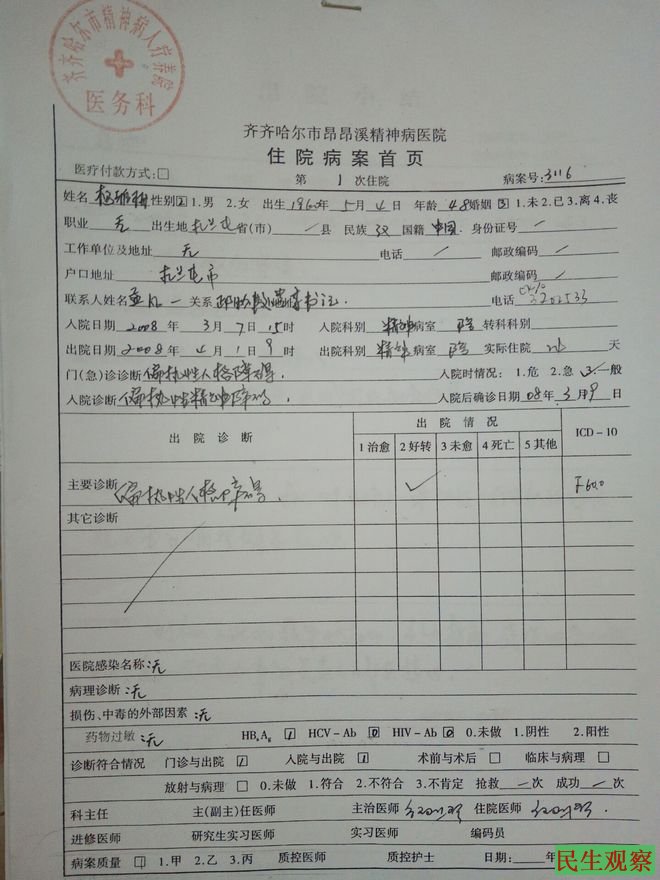 齐齐哈尔市精神病人疗养院
医务科
齐齐哈尔市昂昂溪精神病医院
住院病案首页
医疗付款方式:□ 第 1 次住院 病案号: 3116
姓名 性别 2 1.男 2.女 出生 1960年 5月 4日 年龄 48 婚姻 3 1.未 2.已 3.离 4.丧
职业 无 出生地 扎兰屯 省(市) / 县 民族 汉 国籍 中国 身份证号 /
工作单位及地址 无 电话 / 邮政编码 /
户口地址 扎兰屯市 邮政编码 /
联系人姓名 关系 书记 电话 3202533
入院日期 2008 年 3 月 7 日 15 时 入院科别 精神 病室 转科科别
出院日期 2008 年 4 月 1 日 9 时 出院科别 精神 病室 实际住院 天
门(急)诊诊断 偏执性人格障碍. 入院时情况: 1.危 2.急 3.一般
入院诊断 偏执性精神障碍. 入院后确诊日期 08年 3月9日
出院诊断 出院情况 ICD-10
1治愈 2好转 3未愈 4死亡 5其他
主要诊断 偏执性人格障碍. ✓ F60.0
其它诊断
医院感染名称: 无
病理诊断: 无
损伤、中毒的外部因素: 无
药物过敏: 无 HBsAg 1 HCV-Ab 0 HIV-Ab 0 0.未做 1.阴性 2.阳性
诊断符合情况 门诊与出院 1 入院与出院 1 术前与术后 □ 临床与病理 □
放射与病理 □ 0.未做 1.符合 2.不符合 3.不肯定 抢救 一 次 成功 一 次
科主任 主(副主)任医师 主治医师 住院医师
进修医师 研究生实习医师 实习医师 编码员
病案质量 1.甲 2.乙 3.丙 质控医师 质控护士 日期: 年
民生观察